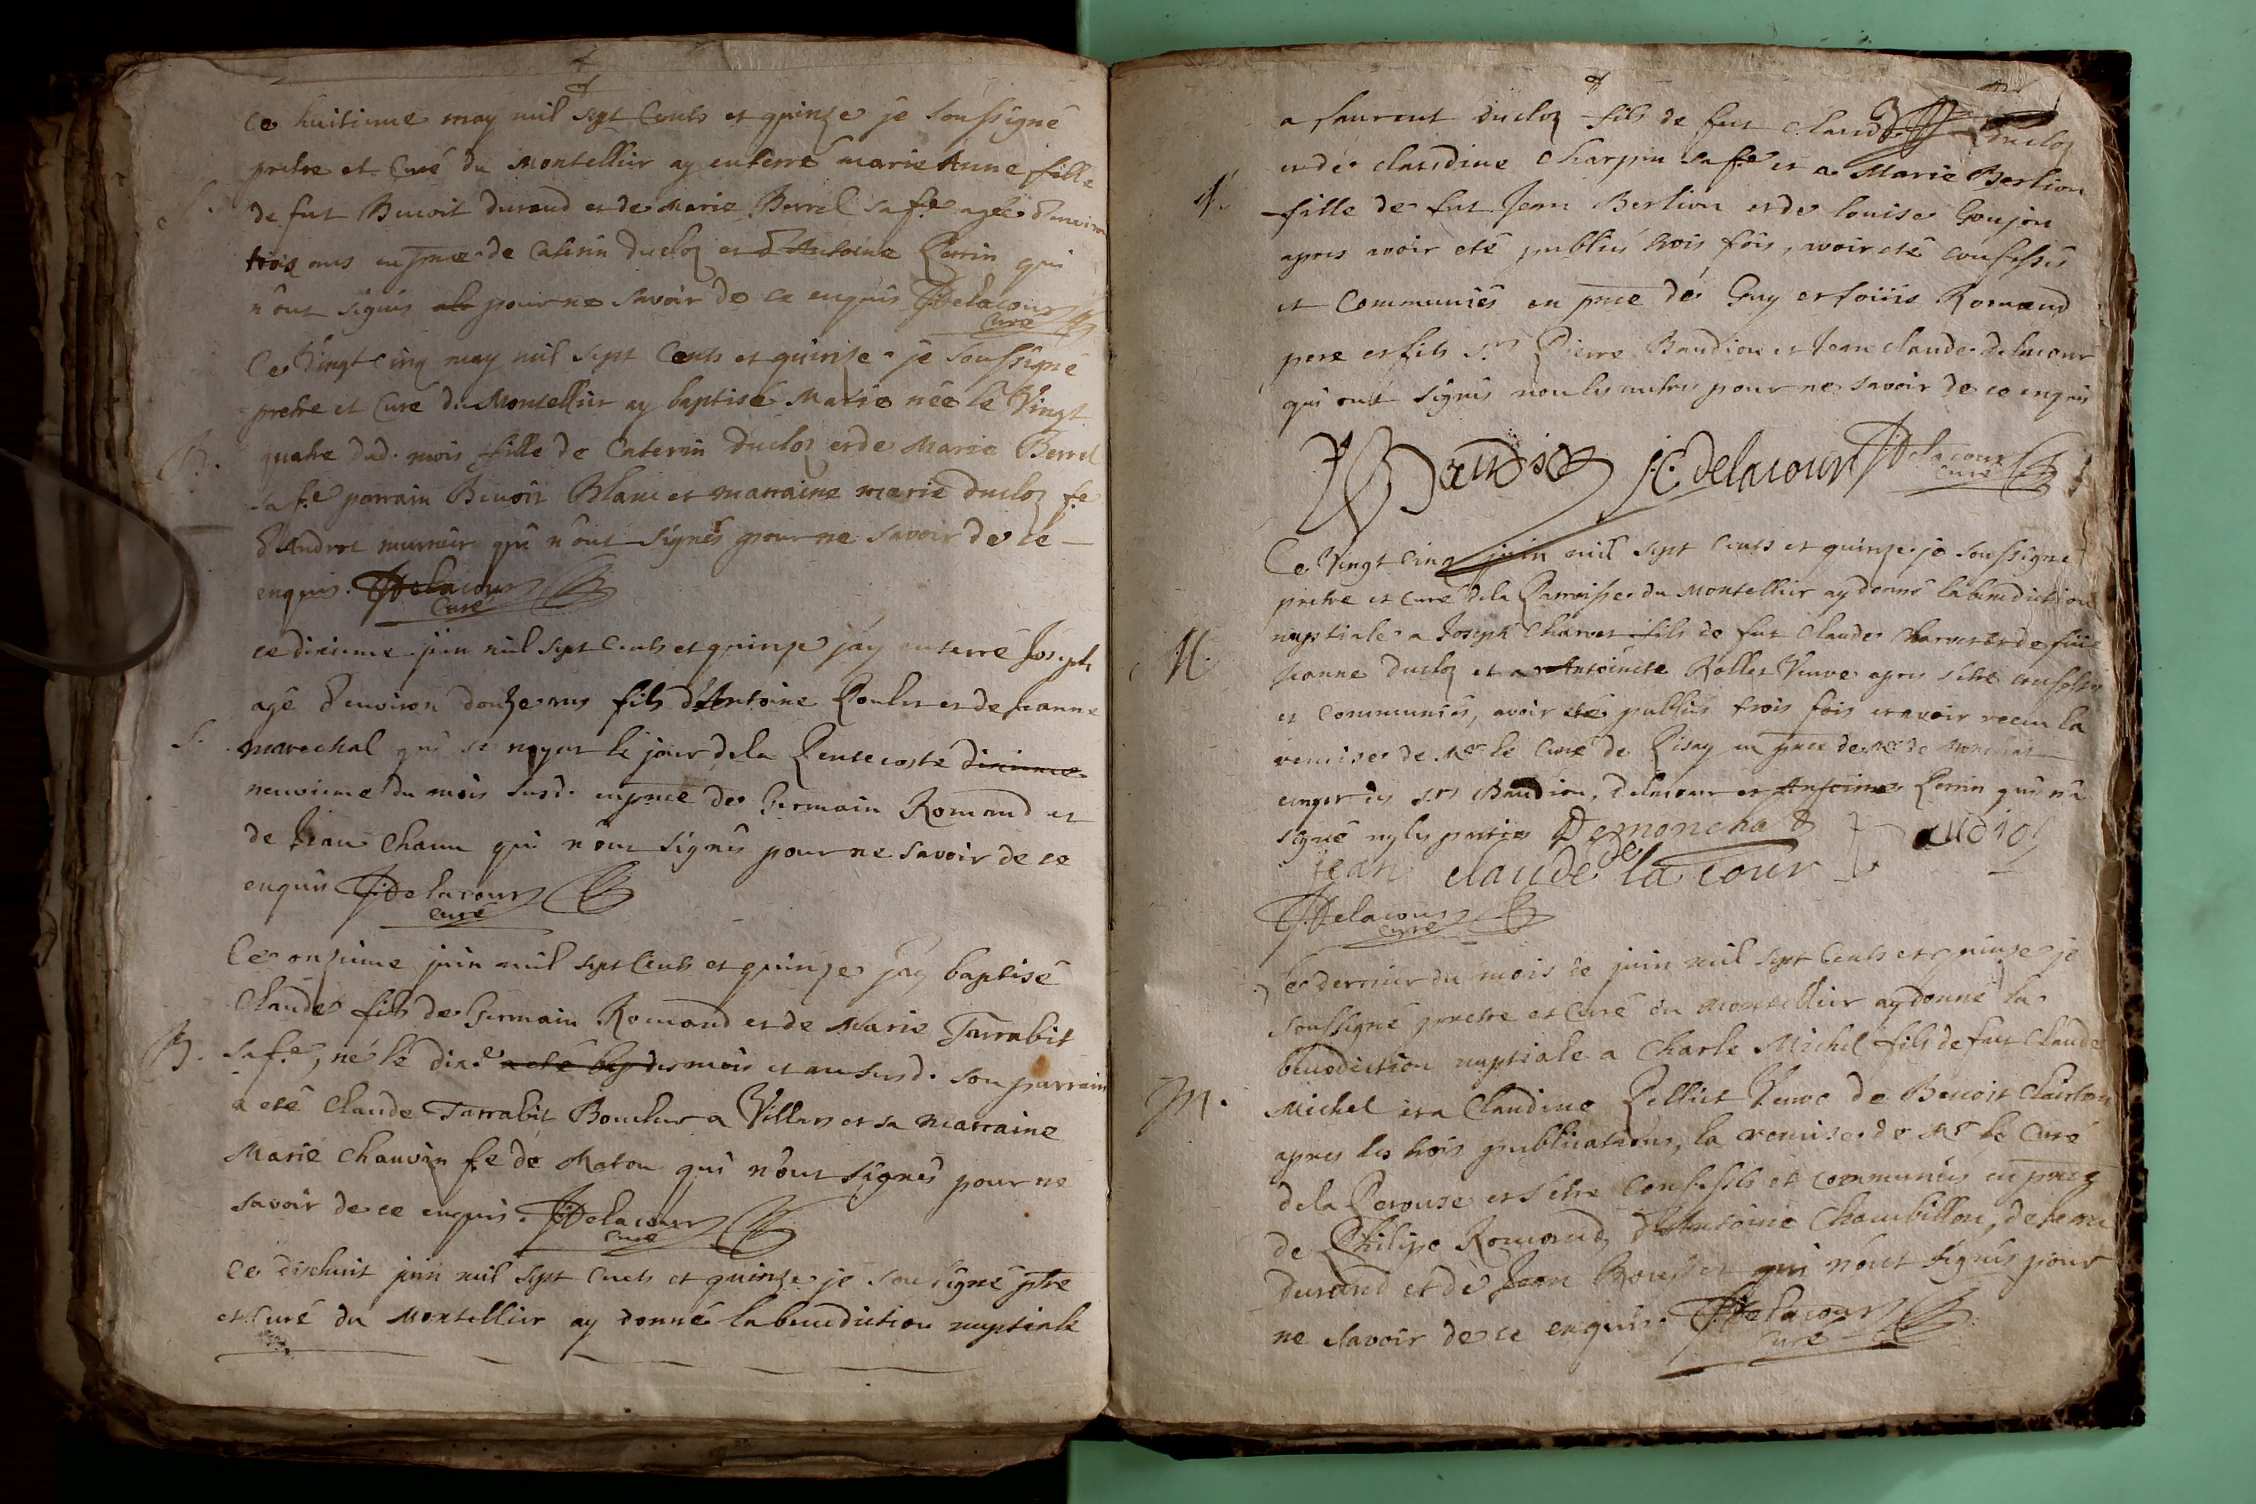 Ce huitieme may mil sept cents et quinze je soussigné
pretre et Curé du Montellier ay enterré marie Anne fille
S.
de fut Benoit durand et de Marie Berrel sa fe. agée d'environ
trois ans en pnce. de Caterin Ducloz et d'Antoine Perrin qui
n'ont signés pour ne savoir de ce enquis Delacour
Curé
Ce Vingt cinq may mil sept Cents et quinze je soussigné
pretre et Curé du Montellier ay baptisé Marie née le Vingt
B.
quatre dud. mois fille de Caterin Ducloz et de Marie Berrel
sa fe. parrain Benoit Blanc et marraine marie ducloz fe.
d'André qui n'ont signés pour ne savoir de ce
enquis. Delacour
Curé
ce dixieme juin mil sept Cents et quinze j'ay enterré Joseph
agé d'environ douze ans fils d'Antoine Roulet et de jeanne
S.
marechal qui se noyat le jour de la Pentecoste dixieme
neuvieme du mois susd. en pnce de Germain Romand et
de Jean Chanu qui n'ont signés pour ne savoir de ce
enquis Delacour
Curé
Ce onzieme juin mil sept Cents et quinze j'ay baptisé
Claude fils de Germain Romand et de Marie Tarrabit
B.
sa fe., né le dix. mois et an susd. son parrain
a eté Claude Tarrabit Boucher a Villars et sa marraine
Marie Chauvin fe. de qui n'ont signés pour ne
savoir de ce enquis. Delacour
Curé
Ce dixhuit juin mil sept cents et quinze je soussigné ptre
et Curé du Montellier ay donné la benediction nuptiale
3
a laurent ducloz fils de fut claude Ducloz
et de claudine Charpin sa fe. et a Marie Berlion
fille de fut Jean Berlion et de louise Goujon
apres avoir eté publiés trois fois, avoir eté confessés
et Communiés en pnce de Guy et loüis Romand
pere et fils srs Pierre Baudion et Jean claude delacour
qui ont signés non les autres pour ne savoir de ce enquis
Baudion J.C. delacour Delacour
Curé
Ce Vingt cinq juin mil sept cents et quinze je soussigné
pretre et curé de la Parroisse du Montellier ay donné la benediction
M.
nuptiale a Joseph Charvet fils de fut Claude Charvet et de fuë
jeanne Ducloz et a Antoinete Rollet Veuve apres s'etre confessés
et communiés, avoir eté publiés trois fois et avoir receu la
remise de Mr le Curé de Pisay en pnce de Mr de
srs Baudion, delacour et Antoine Perrin qui n'a
signé ny les parties
Baudion
jean claude de la cour
Delacour
Curé
Ce dernier du mois de juin mil sept Cents et quinze je
soussigné pretre et Curé du Montellier ay donné la
benediction nuptiale a Charle Michel fils de fut Claude
M.
Michel et a Claudine Pelliet Veuve de Benoit
apres les trois publications, la remise de Mr le Curé
de la Perouse et s'etre Confessés et communiés en pnce
de Philipe Romand, d'Antoine Chambillon, de Jean
durand et de Jean Rousset qui n'ont signés pour
ne savoir de ce enquis. Delacour
Curé